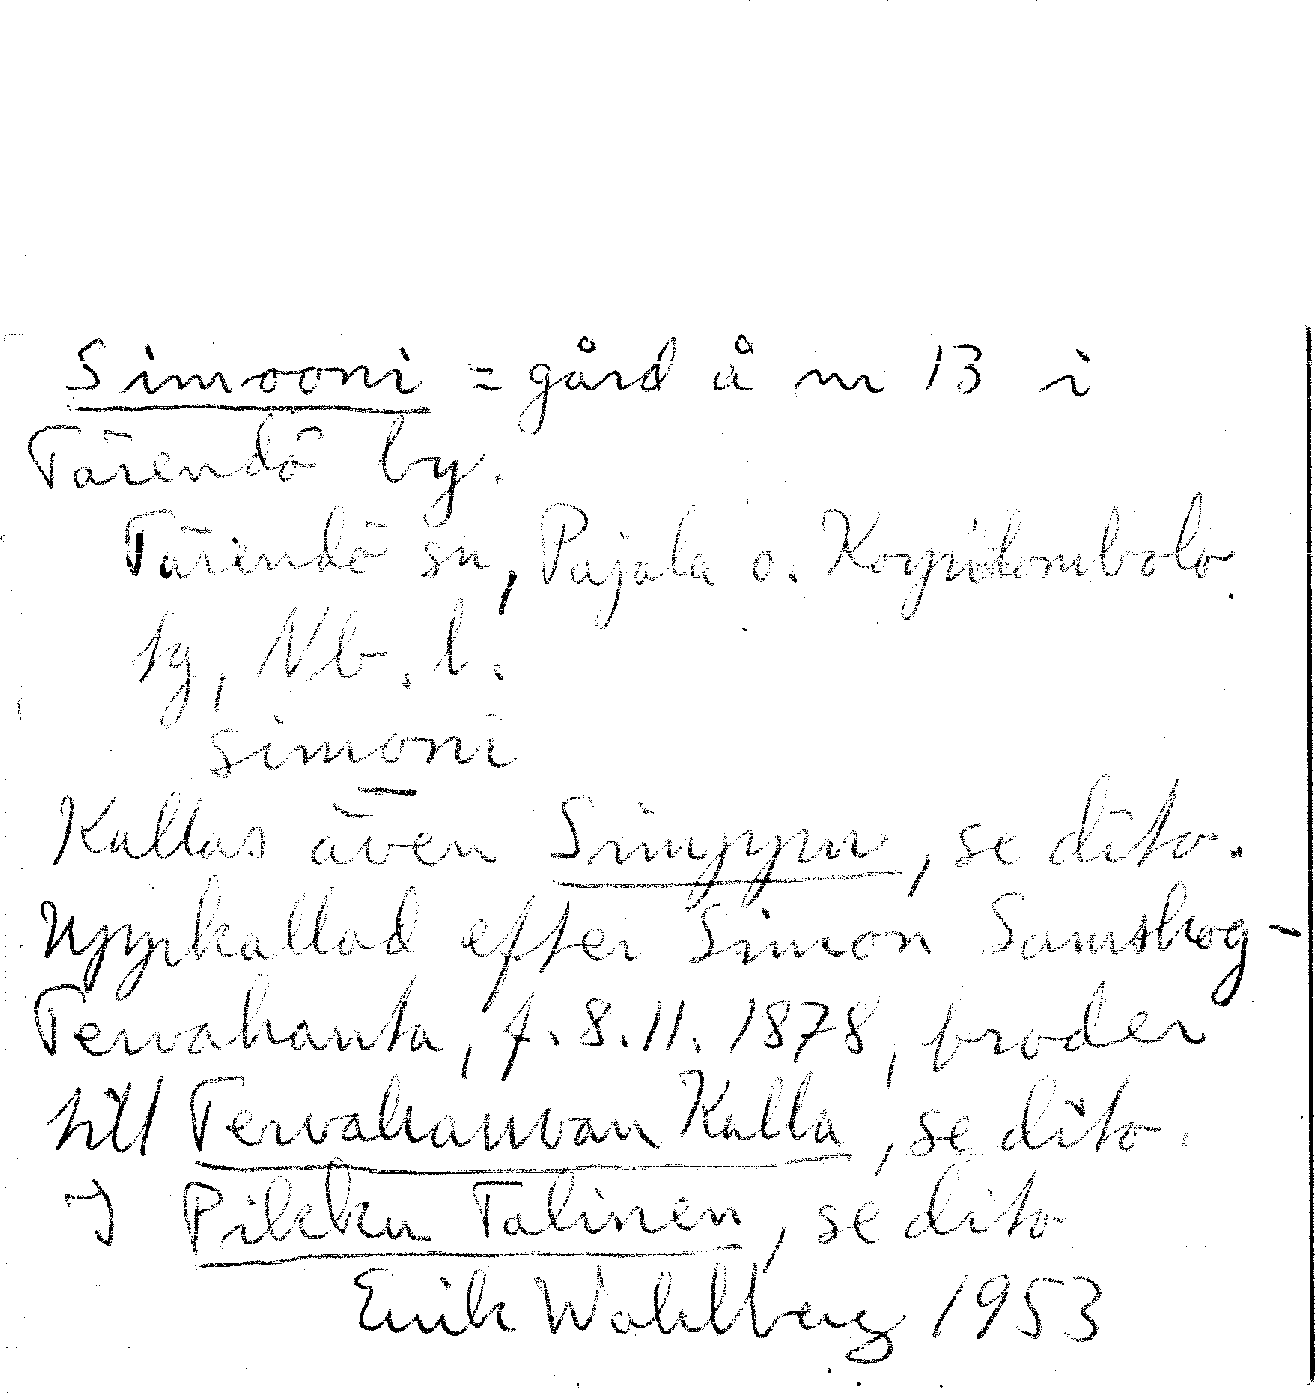 Simooni = gård å nr 13 i
Tärendö by.
Tärendö sn, Pajala o. Korpilombolo
tg, Nb. l.
simoni
Kallas även Simppu, se dito.
Uppkallad efter Simon Samskog-
Tervahauta, f. 8.11. 1878, broder
till Tervahauvan Kalla, se dito.
Pikku Talinen, se dito
Erik Wahlberg 1953